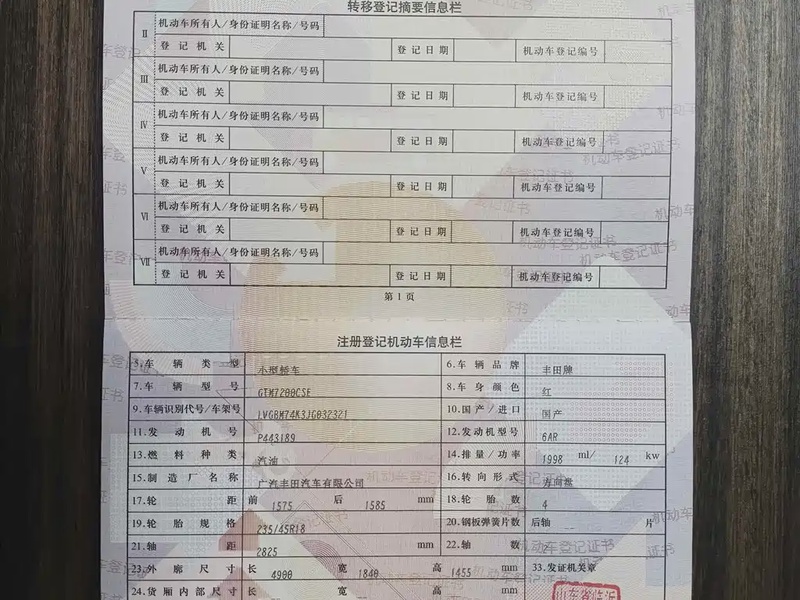 转移登记摘要信息栏
Ⅱ 机动车所有人/身份证明名称/号码
登记机关 登记日期 机动车登记编号
Ⅲ 机动车所有人/身份证明名称/号码
登记机关 登记日期 机动车登记编号
Ⅳ 机动车所有人/身份证明名称/号码
登记机关 登记日期 机动车登记编号
Ⅴ 机动车所有人/身份证明名称/号码
登记机关 登记日期 机动车登记编号
Ⅵ 机动车所有人/身份证明名称/号码
登记机关 登记日期 机动车登记编号
Ⅶ 机动车所有人/身份证明名称/号码
登记机关 登记日期 机动车登记编号
第1页
注册登记机动车信息栏
5.车辆类型 小型轿车 6.车辆品牌 丰田牌
7.车辆型号 GTM7200CSE 8.车身颜色 红
9.车辆识别代号/车架号 LVGBM74K3JG032321 10.国产/进口 国产
11.发动机号 P443189 12.发动机型号 6AR
13.燃料种类 汽油 14.排量/功率 1998 ml/ 124 kw
15.制造厂名称 广汽丰田汽车有限公司 16.转向形式 方向盘
17.轮距 前 1575 后 1585 mm 18.轮胎数 4
19.轮胎规格 235/45R18 20.钢板弹簧片数 后轴 片
21.轴距 2825 mm 22.轴数 2
23.外廓尺寸 长 4900 宽 1840 高 1455 mm 33.发证机关章
24.货厢内部尺寸 长 宽 高 mm
山东省临沂